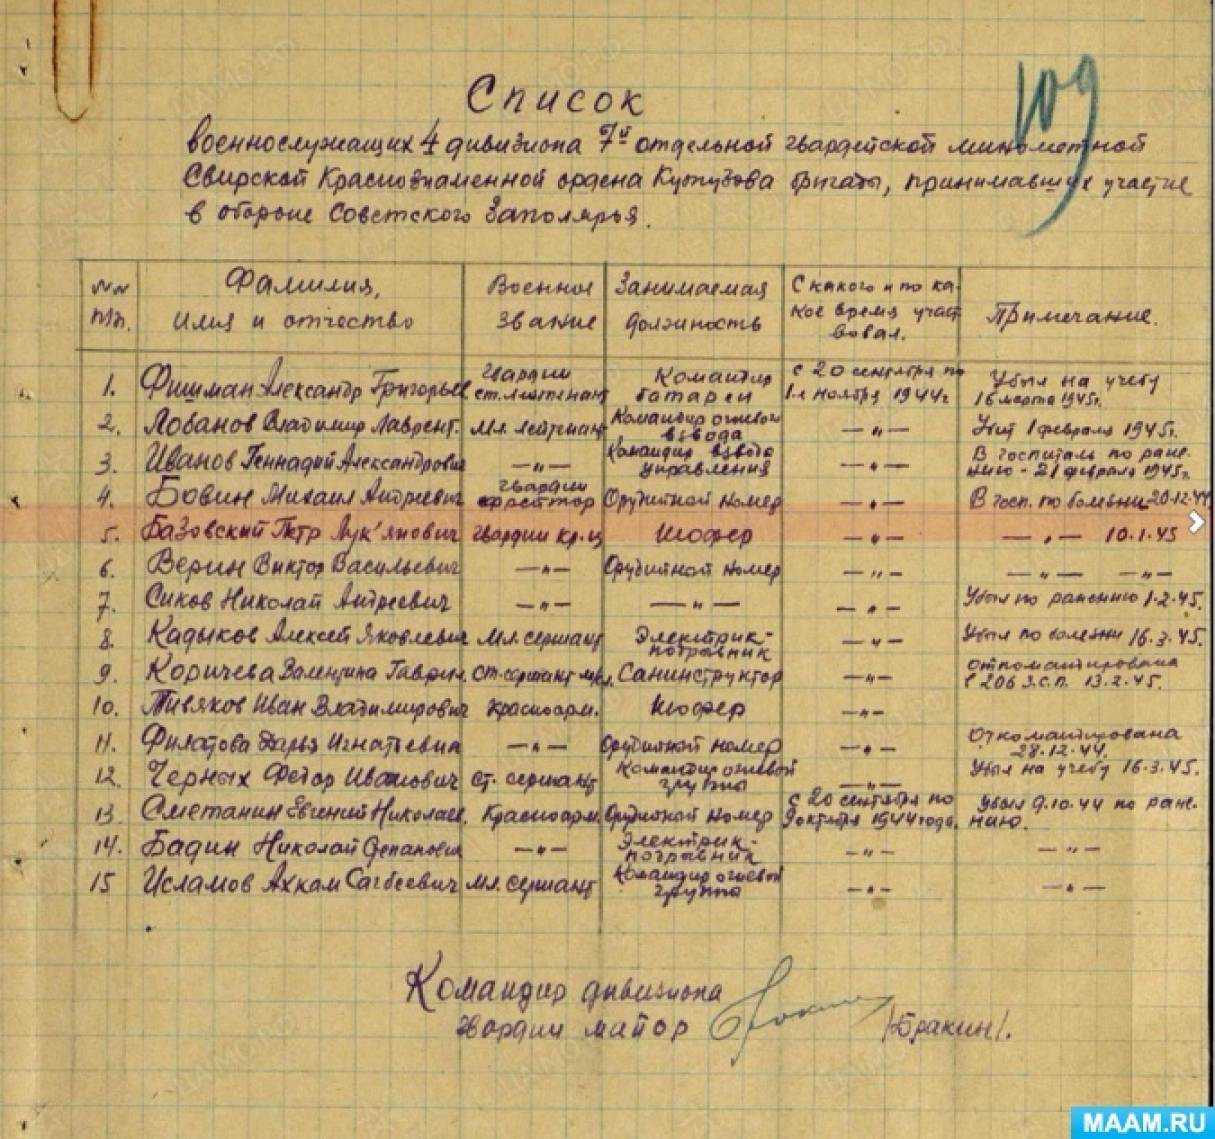 109
Список
военнослужащих 4 дивизиона 7й отдельной гвардейской минометной
Свирской Краснознаменной ордена Кутузова бригады, принимавших участие
в обороне Советского Заполярья.
NN п/п. Фамилия, имя и отчество Военное звание Занимаемая должность С какого и по какое время участвовал. Примечание.
1. Фишман Александр Григорьев гвардии ст. лейтенант Командир батареи с 20 сентября по 1 ноября 1944г Убыл на учебу 16 марта 1945г.
2. Лобанов Владимир Лаврент. Мл. лейтенант Командир огневой взвода —"— 1 февраля 1945г.
3. Иванов Геннадий Александрович —"— Командир взвода управления —"— В госпиталь по ранению - 21 февраля 1945г.
4. Бовин Михаил Андреевич гвардии ефрейтор Орудийной номер —"— В госп. по болезни 20.12.44
5. Базовский Петр Лук'янович гвардии кр-ц Шофер —"— —"— 10.1.45
6. Верин Виктор Васильевич —"— Орудийной номер —"— —"— —"—
7. Сиков Николай Андреевич —"— —"— —"— Убыл по ранению 1.2.45.
8. Кадыков Алексей Яковлевич Мл. сержант Электрик-погравник —"— Убыл по болезни 16.3.45.
9. Коричева Валентина Гаврил. ст. сержант Санинструктор —"— откомандирована в 206 З.С.П. 13.2.45.
10. Тивяков Иван Владимирович Красноарм. Шофер —"—
11. Филатова Дарья Игнатьевна —"— Орудийной номер —"— Откомандирована 28.12.44.
12. Черных Федор Иванович Ст. сержант Командир огневой группы —"— Убыл на учебу 16.3.45.
13. Сметанин Евгений Николаев. Красноарм. Орудийной номер с 20 сентября по 9 октября 1944 года. Убыл 9.10.44 по ранению.
14. Бадин Николай Степанович —"— Электрик-погравник —"— —"—
15 Исламов Ахкам Сагбеевич Мл. сержант Командир огневой группы —"— —"—
Командир дивизиона
гвардии майор /Бракин/.
MAAM.RU